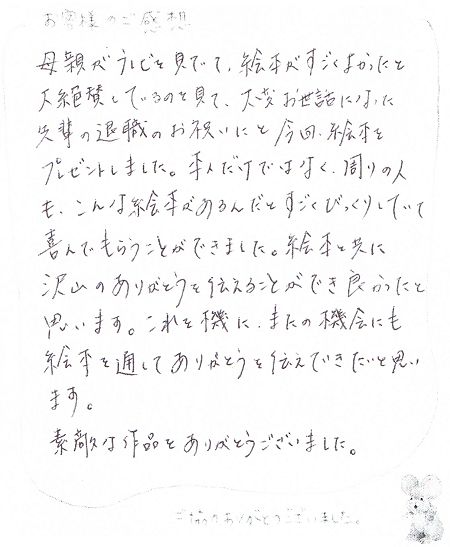 お客様のご感想
母親がテレビを見ていて、絵本がすごくよかったと
大絶賛しているのを見て、大変お世話になった
先輩の退職のお祝いにと今回、絵本を
プレゼントしました。本人だけではなく、周りの人
も、こんな絵本があるんだとすごくびっくりしていて
喜んでもらうことができました。絵本と共に
沢山のありがとうを伝えることができ良かったと
思います。これを機に、またの機会にも
絵本を通してありがとうを伝えていきたいと思い
ます。
素敵な作品をありがとうございました。
ご協力ありがとうございました。